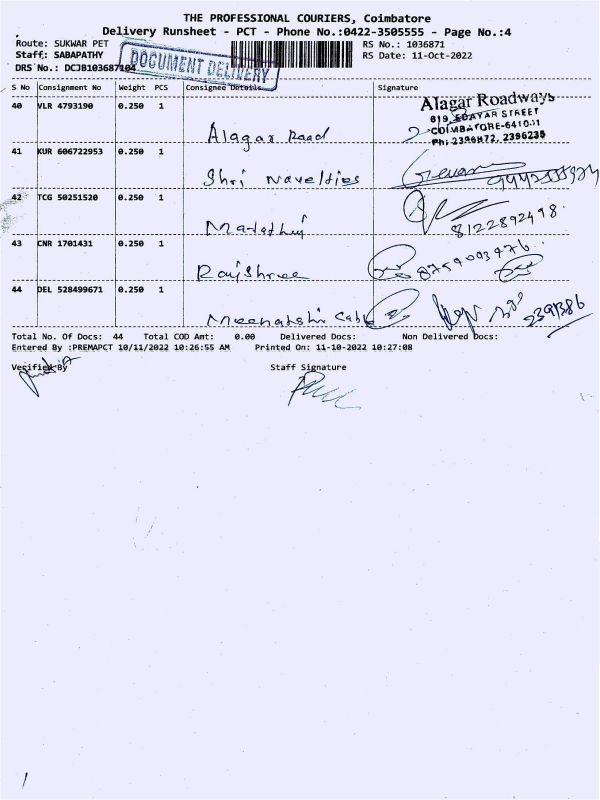 THE PROFESSIONAL COURIERS, Coimbatore
Delivery Runsheet - PCT - Phone No.:0422-3505555 - Page No.:4
Route: SUKWAR PET RS No.: 1036871
Staff: SABAPATHY RS Date: 11-Oct-2022
DRS No.: DCJB103687104
DOCUMENT DELIVERY
S No Consignment No Weight PCS Consignee Details Signature
40 VLR 4793190 0.250 1
Alagar Road
Alagar Roadways
619, EDAYAR STREET
COIMBATORE-641001
Ph: 2396872, 2396235
41 KUR 606722953 0.250 1
Shri Novelties
42 TCG 50251520 0.250 1
8122892498
43 CNR 1701431 0.250 1
Rajshree 8759093476
44 DEL 528499671 0.250 1
Meenakshi Cable 2391386
Total No. Of Docs: 44 Total COD Amt: 0.00 Delivered Docs: Non Delivered Docs:
Entered By :PREMAPCT 10/11/2022 10:26:55 AM Printed On: 11-10-2022 10:27:08
Verified By Staff Signature